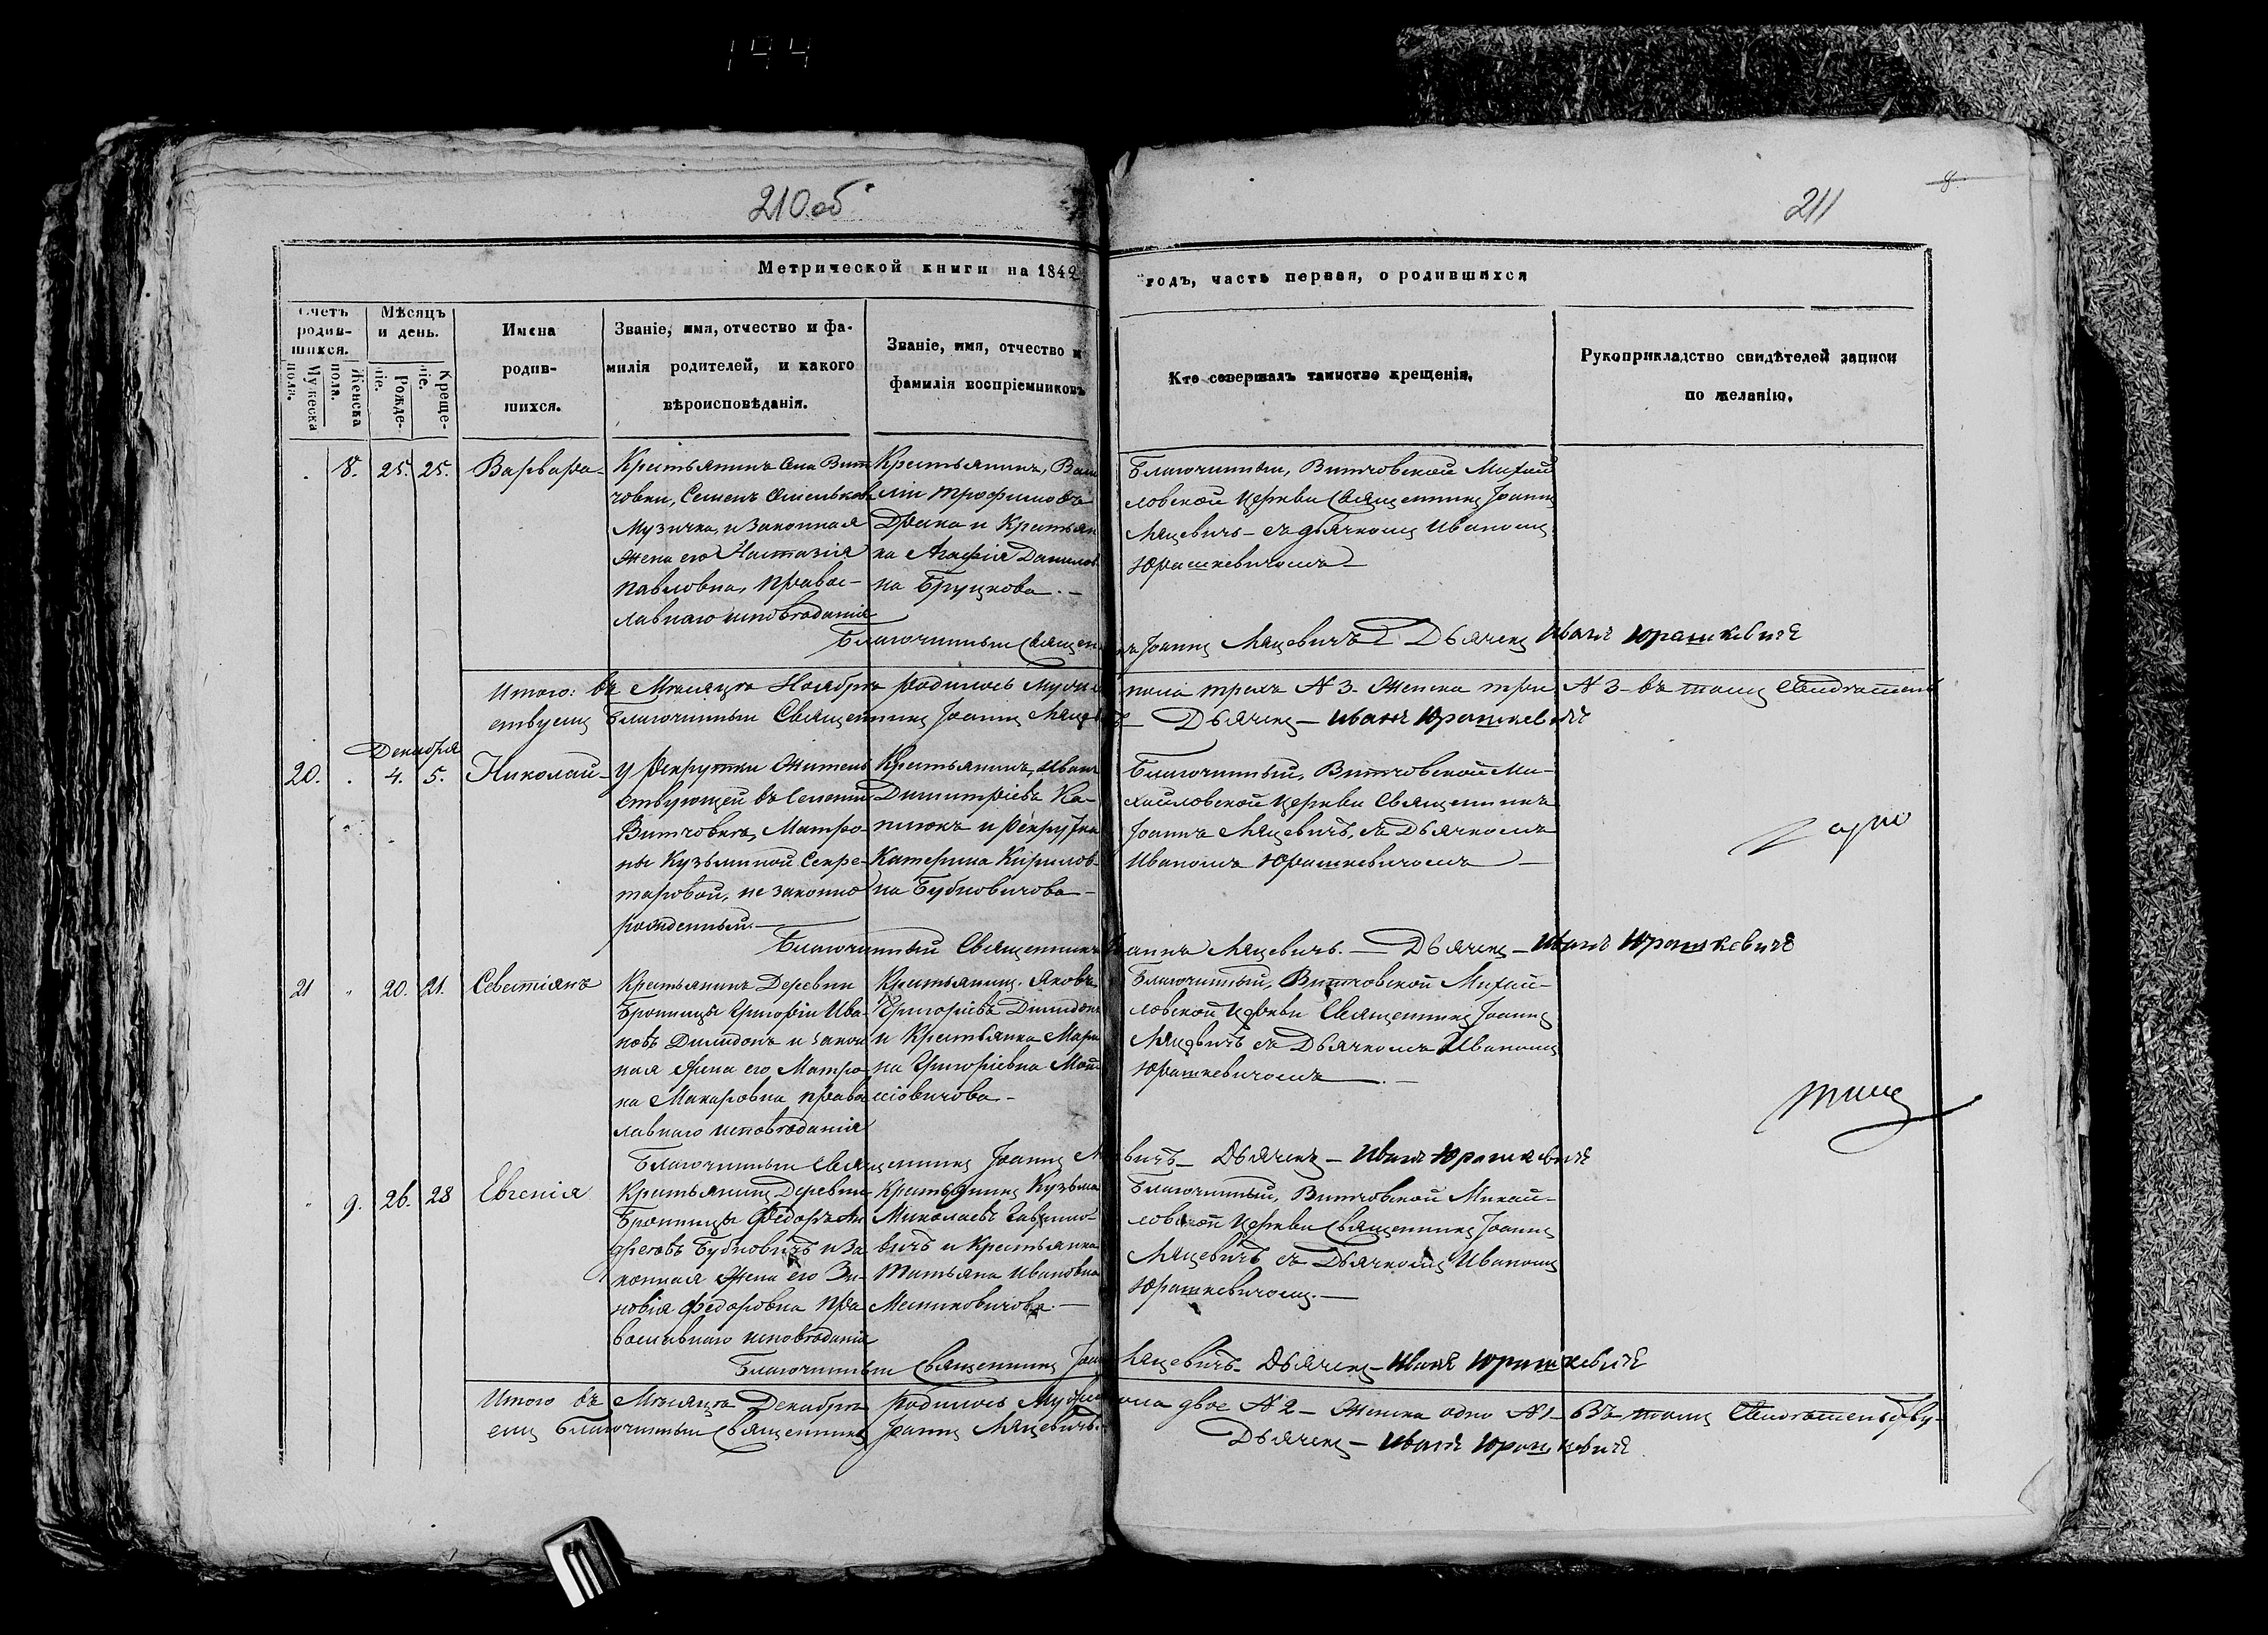 194
210 об
211
8.
Метрической книги на 1842
годъ, часть первая, о родившихся
Счетъ родив-
шихся.
Мужеска пола.
Женска пола.
Мѣсяцъ
и день.
Рожде-
ніе.
Креще-
ніе.
Имена
родив-
шихся.
Званіе, имя, отчество и фа-
милія родителей, и какого
вѣроисповѣданія.
Званіе, имя, отчество и
фамилія воспріемниковъ
Кто совершалъ таинство крещенія.
Рукоприкладство свидѣтелей записи
по желанію.
8. 25. 25. Варвара
Крестьянинъ Села Вит
човки, Семенъ
Музичка, и Законная
Жена его Настазія
Павловна, Правос-
лавнаго исповѣданія
Крестьянинъ, Васи
лій Трофимовъ
и Крестьян
ка Агафія Данилов
на Бруцкова. —
Благочинный, Витчовской Михай
ловской Церкви Священникъ Іоаннъ
Мацевичъ — съ дьячкомъ Иваномъ
Юрашкевичомъ —
Благочинный Священ
къ Іоаннъ Мацевичъ Дьячекъ Иванъ Юрашкевичъ
Итого: въ Мѣсяцѣ Ноябрѣ родилось Мужес
пола трехъ N 3 — Женска три N 3 — въ томъ Свидѣтель
ствуемъ Благочинный Священникъ Іоаннъ Мацев
Дьячекъ — Иванъ Юрашкевичъ
Декабря
20. 4. 5. Николай —
У рекрутки Житель
ствующей въ Селеніи
Витчовкѣ, Матро-
ны Кузьминой Секре-
таровой, не законно
рожденный. —
Крестьянинъ, Иванъ
Димитріевъ Ка-
и Рекрутка
Катерина Кирилов-
на Бубновичова —
Благочинный, Витчовской Ми-
хайловской Церкви Священникъ
Іоаннъ Мацевичъ, съ Дьячкомъ
Иваномъ Юрашкевичомъ —
Благочинный Священникъ
Іоаннъ Мацевичъ. — Дьячекъ — Иванъ Юрашкевичъ
21 20. 21. Севастіянъ
Крестьянинъ Деревни
Бронницы Григорій Ива-
новъ Димидокъ и закон
ная Жена его Матро-
на Макаровна право
лавнаго исповѣданія
Крестьянинъ Яковъ
Григоріевъ Димидокъ
и Крестьянка Мари
на Григоріевна Мой-
сіовичова —
Благочинный, Витчовской Михай-
ловской Церкви Священникъ Іоаннъ
Мацевичъ съ Дьячкомъ Иваномъ
Юрашкевичомъ —
Благочинный Священникъ Іоаннъ М
евичъ — Дьячекъ — Иванъ Юрашкевичъ
9. 26. 28 Евгенія
Крестьянинъ Деревни
Бронницы Федоръ Ан
дреевъ Бубновичъ и За
конная Жена его Зи-
новія Федоровна Пра
вославнаго исповѣданія
Крестьянинъ Кузьма
Миколаевъ Гаврило-
вичъ и Крестьянка
Татьяна Ивановна
Мешиковичова. —
Благочинный, Витчовской Михай-
ловской Церкви Священникъ Іоаннъ
Мацевичъ съ Дьячкомъ Иваномъ
Юрашкевичомъ. —
Благочинный Священникъ Іоан
Мацевичъ — Дьячекъ — Иванъ Юрашкевичъ
Итого въ Мѣсяцѣ Декабрѣ родилось Мужес
пола двое N 2 — Женска одно N 1 — Въ томъ Свидѣтельству-
емъ Благочинный Священникъ Іоаннъ Мацевичъ.
Дьячекъ — Иванъ Юрашкевичъ